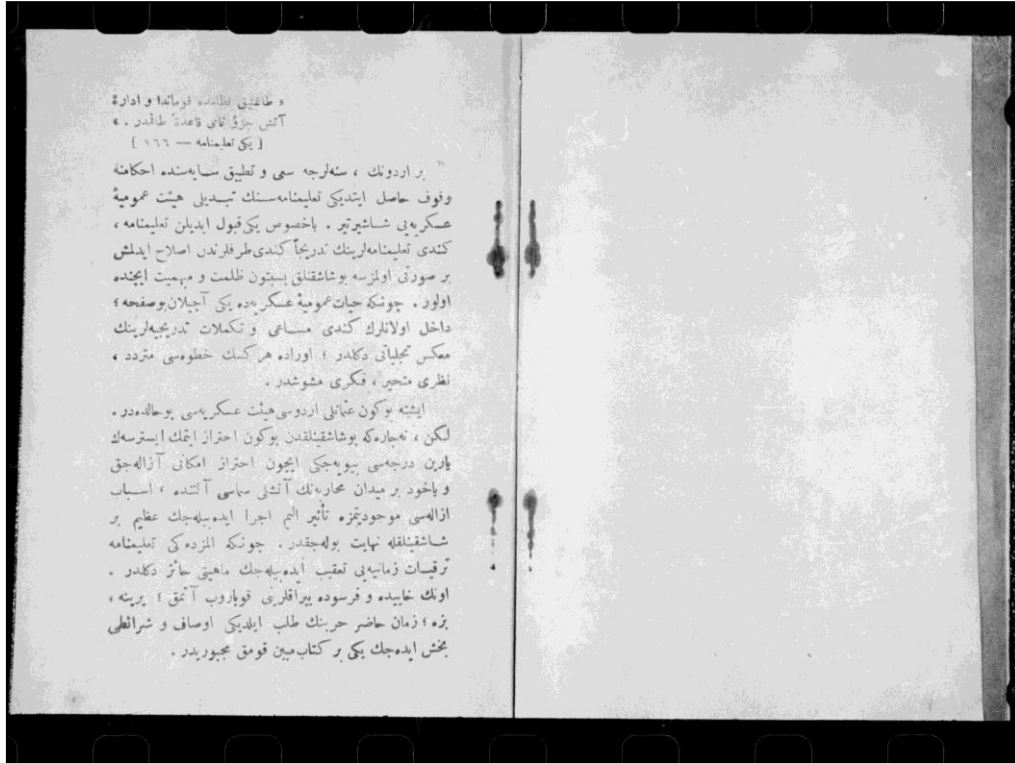 « طاغنيق نظامده قوماندا و ادارهٔ
آتش جزؤ تامی قاعدةً طاقمدر . »
[ يكی تعليمنامه — ١٦٦ ]
بر اردونك ، سنه‌لرجه سعی و تطبيق سايه‌سنده احكامنه
وقوف حاصل ايتديكی تعليمنامه‌سنك تبديلی هيئت عموميهٔ
عسكريه‌یی شاشيرتير . باخصوص يكی قبول ايديلن تعليمنامه ،
كندی تعليمنامه‌لرينك تدريجاً كندی طرفلرندن اصلاح ايدلمش
بر صورتی اولمزسه بوشاشقنلق بسبتون ظلمت و مبهميت ايچنده
اولور . چونكه حيات عموميهٔ عسكريه‌ده يكی آچيلان بوصفحه ؛
داخل اولانلرك كندی مساعی و تكملات تدريجيه‌لرينك
معكس تجلياتی دكلدر ؛ اوراده هر كسك خطوه‌سی متردد ،
نظری متحير ، فكری مشوشدر .
ايشته بوكون عثمانلی اردوسی هيئت عسكريه‌سی بوحالده‌در .
لكن ، نه‌چاره‌كه بوشاشقينلقدن بوكون احتراز ايتمك ايسترسه‌ك
يارين درجه‌سی بيويه‌جكی ايچون احتراز امكانی آزاله‌جق
و ياخود بر ميدان محاربه‌نك آتشلی سماسی آلتنده ، اسباب
ازاله‌سی موجوديتمزه تأثير اليم اجرا ايده‌بيله‌جك عظيم بر
شاشقينلقله نهايت بوله‌جقدر . چونكه المزده‌كی تعليمنامه
ترقيات زمانيه‌یی تعقيب ايده‌بيله‌جك ماهيتی حائز دكلدر .
اونك خابيده و فرسوده يپراقلرينی قوپاروب آتمق ؛ يرينه ،
بزه ؛ زمان حاضر حربنك طلب ايلديكی اوصاف و شرائطی
بخش ايده‌جك يكی بر كتاب مبين قومق مجبوريدر .